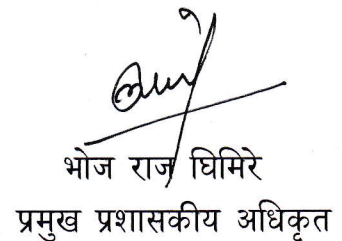 भोज राज घिमिरे
प्रमुख प्रशासकीय अधिकृत